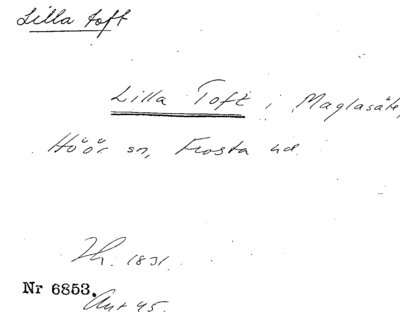 Lilla Toft
Lilla Toft i Maglasäte,
Höör sn, Frosta hd
Hh. 1831.
Nr 6853.
Ant 45.